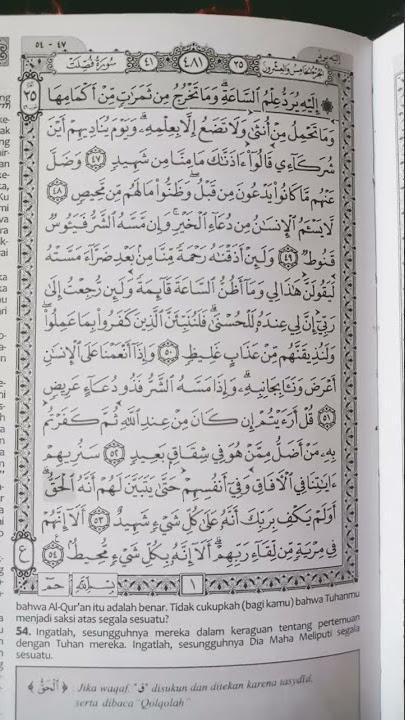 إليه يرد
٤٧ - ٥٤
سُورَةُ فُصِّلَت
٤١
٤٨١
٢٥
الجزء الخامس والعشرون
إِلَيْهِ يُرَدُّ عِلْمُ السَّاعَةِ ۚ وَمَا تَخْرُجُ مِن ثَمَرَٰتٍ مِّنْ أَكْمَامِهَا
٢٥
وَمَا تَحْمِلُ مِنْ أُنثَىٰ وَلَا تَضَعُ إِلَّا بِعِلْمِهِۦ ۚ وَيَوْمَ يُنَادِيهِمْ أَيْنَ
شُرَكَآءِى قَالُوٓا۟ ءَاذَنَّٰكَ مَا مِنَّا مِن شَهِيدٍ ٤٧ وَضَلَّ
عَنْهُم مَّا كَانُوا۟ يَدْعُونَ مِن قَبْلُ ۖ وَظَنُّوا۟ مَا لَهُم مِّن مَّحِيصٍ ٤٨
لَّا يَسْـَٔمُ الْإِنسَٰنُ مِن دُعَآءِ الْخَيْرِ وَإِن مَّسَّهُ الشَّرُّ فَيَـُٔوسٌ
قَنُوطٌ ٤٩ وَلَئِنْ أَذَقْنَٰهُ رَحْمَةً مِّنَّا مِنۢ بَعْدِ ضَرَّآءَ مَسَّتْهُ
لَيَقُولَنَّ هَٰذَا لِى وَمَآ أَظُنُّ السَّاعَةَ قَآئِمَةً وَلَئِن رُّجِعْتُ إِلَىٰ
رَبِّىٓ إِنَّ لِى عِندَهُۥ لَلْحُسْنَىٰ ۚ فَلَنُنَبِّئَنَّ الَّذِينَ كَفَرُوا۟ بِمَا عَمِلُوا۟
وَلَنُذِيقَنَّهُم مِّنْ عَذَابٍ غَلِيظٍ ٥٠ وَإِذَآ أَنْعَمْنَا عَلَى الْإِنسَٰنِ
أَعْرَضَ وَنَـَٔا بِجَانِبِهِۦ وَإِذَا مَسَّهُ الشَّرُّ فَذُو دُعَآءٍ عَرِيضٍ
٥١ قُلْ أَرَءَيْتُمْ إِن كَانَ مِنْ عِندِ اللَّهِ ثُمَّ كَفَرْتُم
بِهِۦ مَنْ أَضَلُّ مِمَّنْ هُوَ فِى شِقَاقٍۭ بَعِيدٍ ٥٢ سَنُرِيهِمْ
ءَايَٰتِنَا فِى الْءَافَاقِ وَفِىٓ أَنفُسِهِمْ حَتَّىٰ يَتَبَيَّنَ لَهُمْ أَنَّهُ الْحَقُّ ۗ
أَوَلَمْ يَكْفِ بِرَبِّكَ أَنَّهُۥ عَلَىٰ كُلِّ شَىْءٍ شَهِيدٌ ٥٣ أَلَآ إِنَّهُمْ
فِى مِرْيَةٍ مِّن لِّقَآءِ رَبِّهِمْ ۗ أَلَآ إِنَّهُۥ بِكُلِّ شَىْءٍ مُّحِيطٌۢ ٥٤
ع
١
حمٓ
bahwa Al-Qur'an itu adalah benar. Tidak cukupkah (bagi kamu) bahwa Tuhanmu
menjadi saksi atas segala sesuatu?
54. Ingatlah, sesungguhnya mereka dalam keraguan tentang pertemuan
dengan Tuhan mereka. Ingatlah, sesungguhnya Dia Maha Meliputi segala
sesuatu.
﴿ الْحَقُّ ﴾ : Jika waqaf, "ق" disukun dan ditekan karena tasydid,
serta dibaca "Qolqolah"